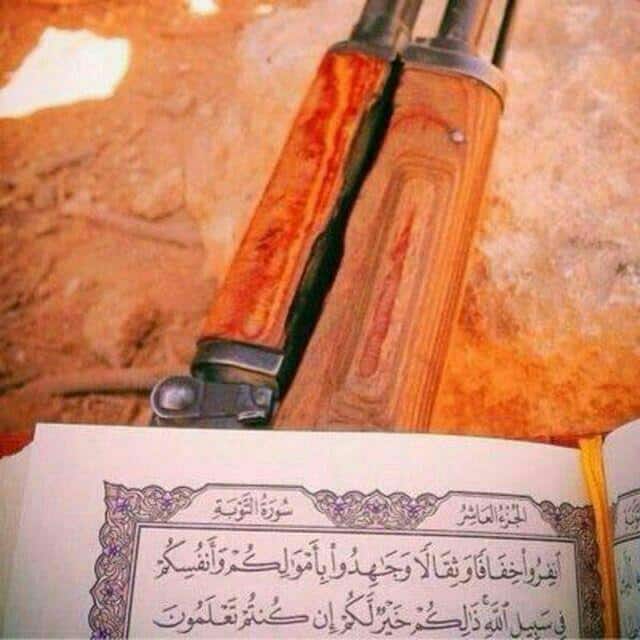 الجزء العاشر سورة التوبة
انفِرُوا۟ خِفَافًا وَثِقَالًا وَجَـٰهِدُوا۟ بِأَمْوَٰلِكُمْ وَأَنفُسِكُمْ
فِى سَبِيلِ ٱللَّهِ ۚ ذَٰلِكُمْ خَيْرٌ لَّكُمْ إِن كُنتُمْ تَعْلَمُونَ